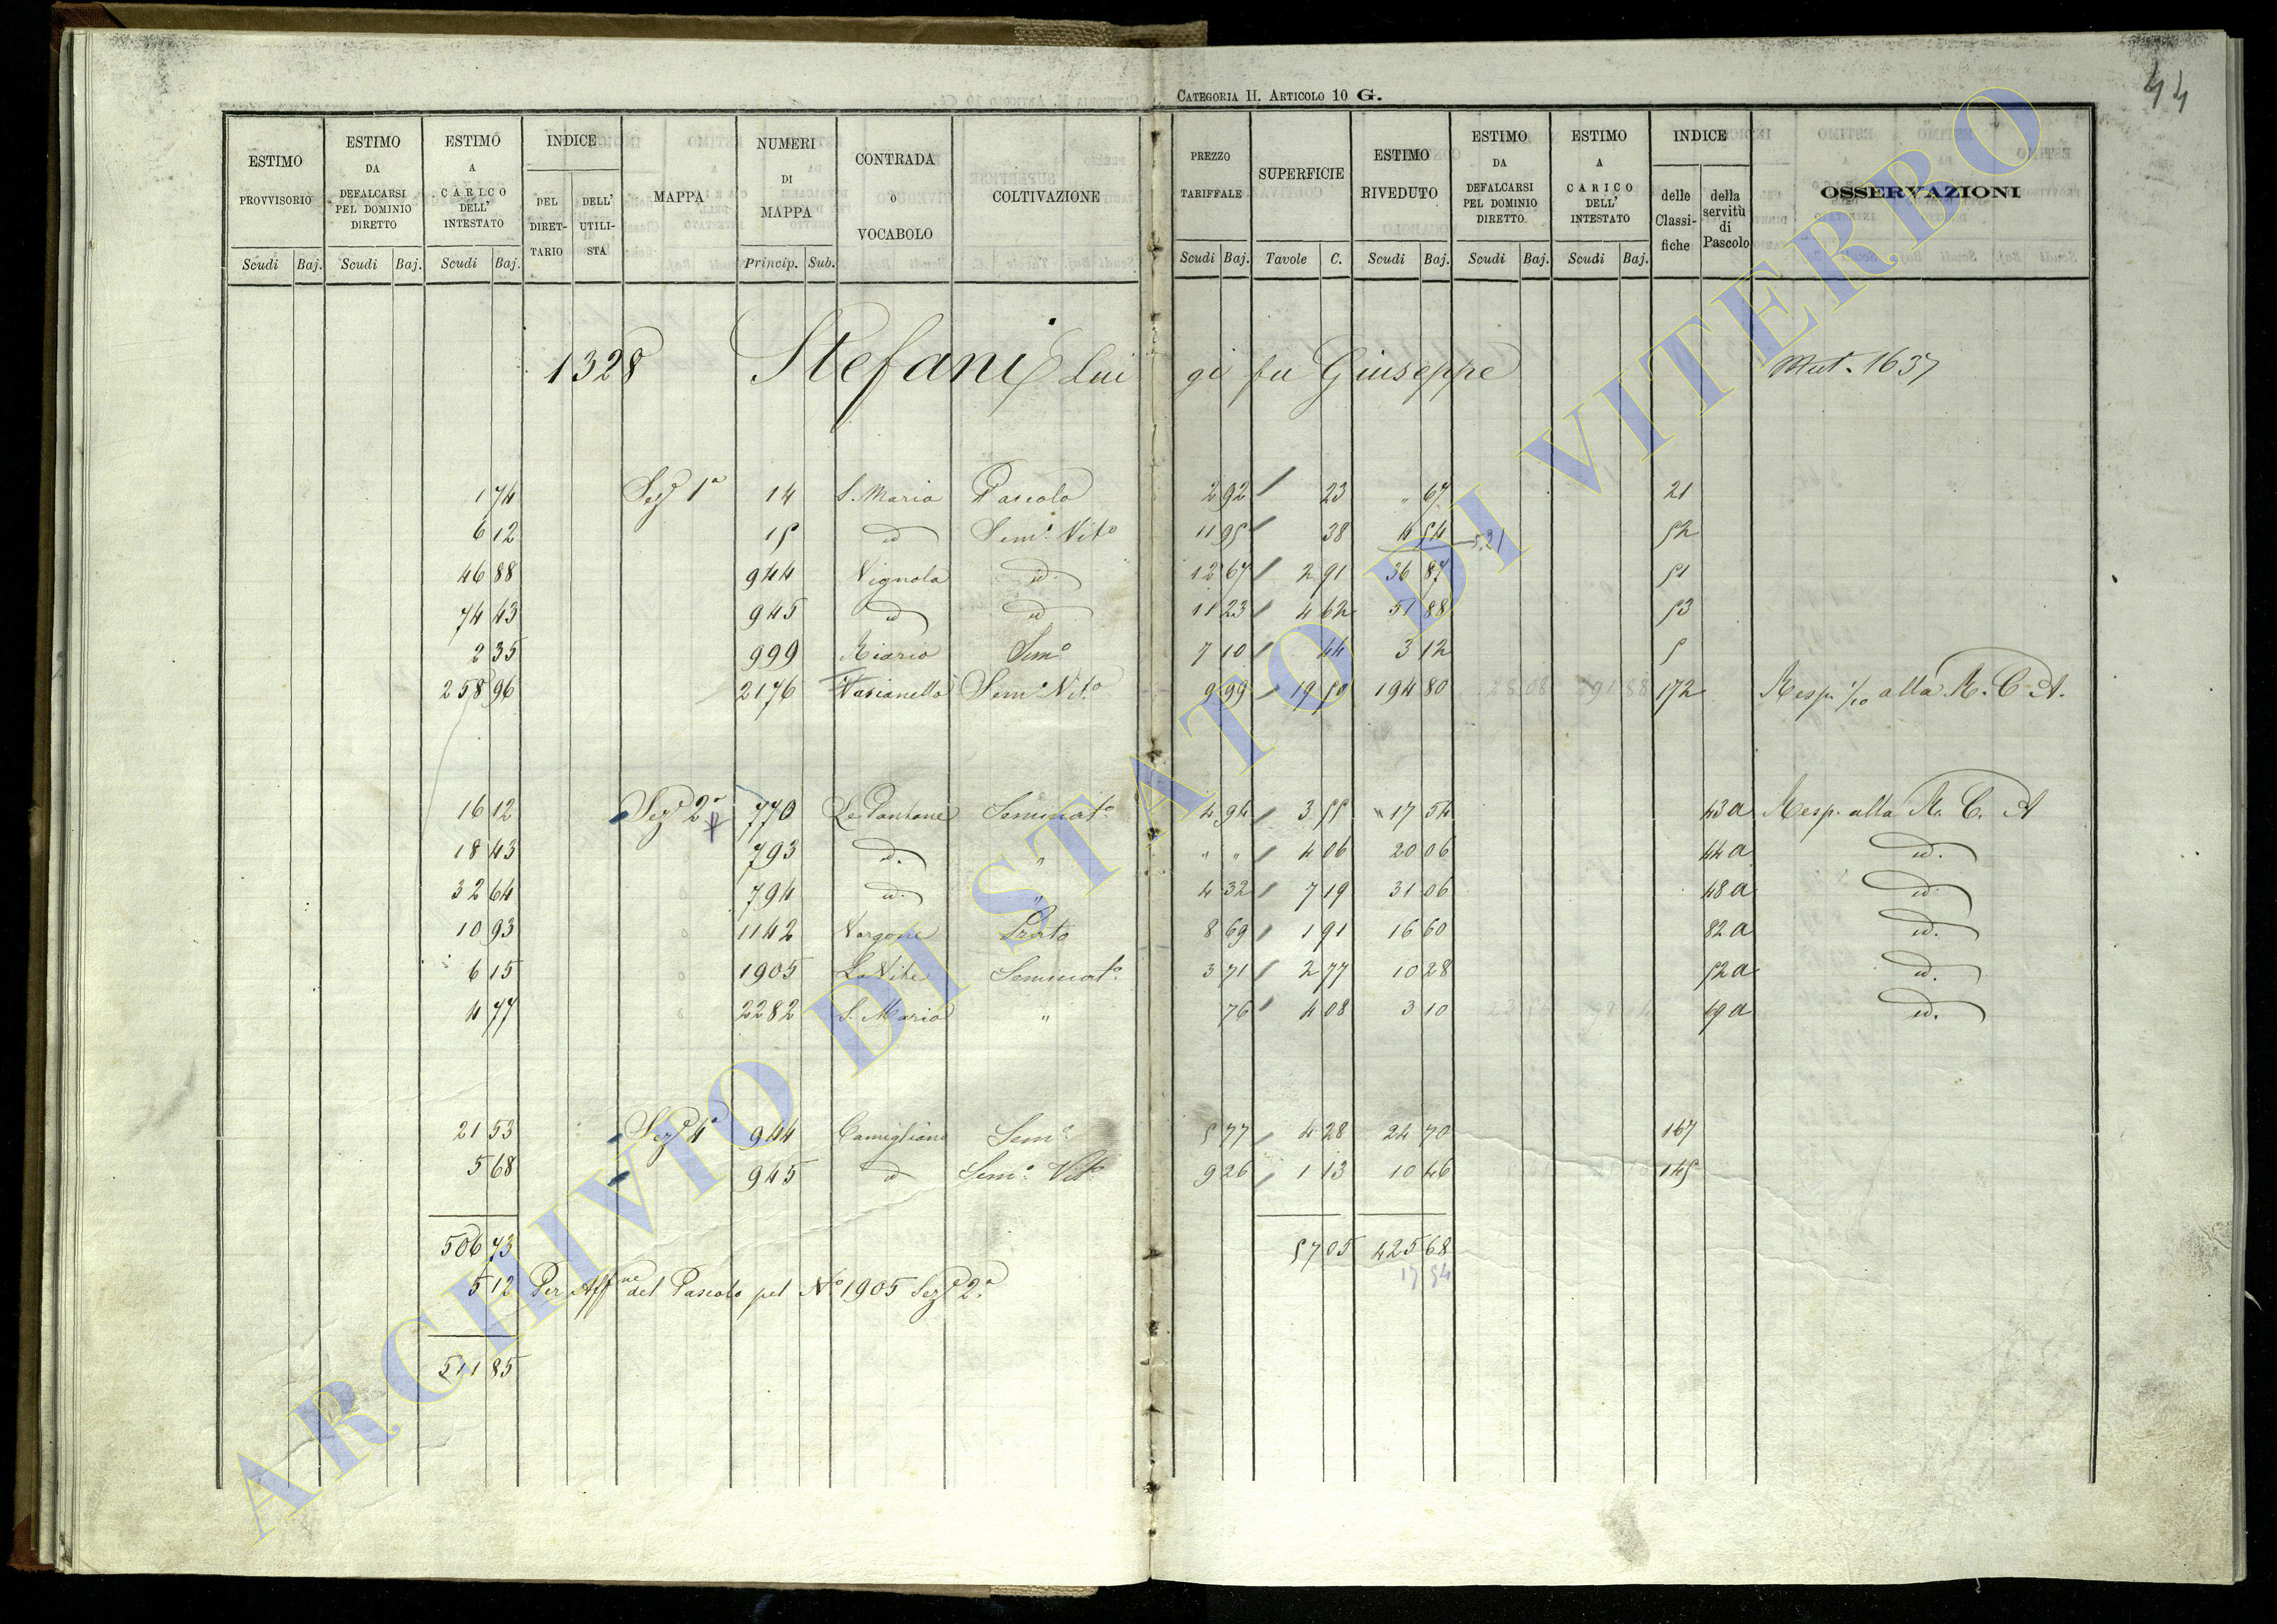 44
CATEGORIA II. ARTICOLO 10 G.
ESTIMO PROVVISORIO Scudi Baj.
ESTIMO DA DEFALCARSI PEL DOMINIO DIRETTO Scudi Baj.
ESTIMO A CARICO DELL' INTESTATO Scudi Baj.
INDICE DEL DIRET-TARIO DELL' UTILI-STA
MAPPA
NUMERI DI MAPPA Princip. Sub.
CONTRADA O VOCABOLO
COLTIVAZIONE
PREZZO TARIFFALE Scudi Baj.
SUPERFICIE Tavole C.
ESTIMO RIVEDUTO Scudi Baj.
ESTIMO DA DEFALCARSI PEL DOMINIO DIRETTO Scudi Baj.
ESTIMO A CARICO DELL' INTESTATO Scudi Baj.
INDICE delle Classi-fiche della servitù di Pascolo
OSSERVAZIONI
1328 Stefani Luigi fu Giuseppe Mut. 1637
1 74 Sez. 1a 14 S. Maria Pascolo 2 92 23 " 67 21
6 12 15 id Sem. Vito 11 95 38 4 54 5,21 52
46 88 944 Vignola id. 12 67 2 91 36 87 51
74 43 945 id id 11 23 4 62 51 88 53
2 35 999 Riario Sem.o 7 10 44 3 12 5
258 96 2176 Vasianello Sem. Vit.o 9 99 19 50 194 80 172 Resp. 1/10 alla R. C. A.
16 12 Sez. 2a 770 Le Pantane Seminat.o 4 94 3 55 17 54 43 a Resp. alla R. C. A
18 43 793 id. " " " 4 06 20 06 44 a id.
32 64 794 id. " 4 32 7 19 31 06 48 a id.
10 93 1142 Vargone Prato 8 69 1 91 16 60 82 a id.
6 15 1905 La Vite Seminat.o 3 71 2 77 10 28 52 a id.
4 77 2282 S. Maria " 76 4 08 3 10 69 a id.
21 53 Sez. 4a 944 Camigliano Sem.o 5 77 4 28 24 70 167
5 68 945 id Sem. Vit.o 9 26 1 13 10 46 145
506 73 57 05 425 68
17 54
5 12 Per Aff.ne del Pascolo pel N.o 1905 Sez. 2a
511 85
ARCHIVIO DI STATO DI VITERBO